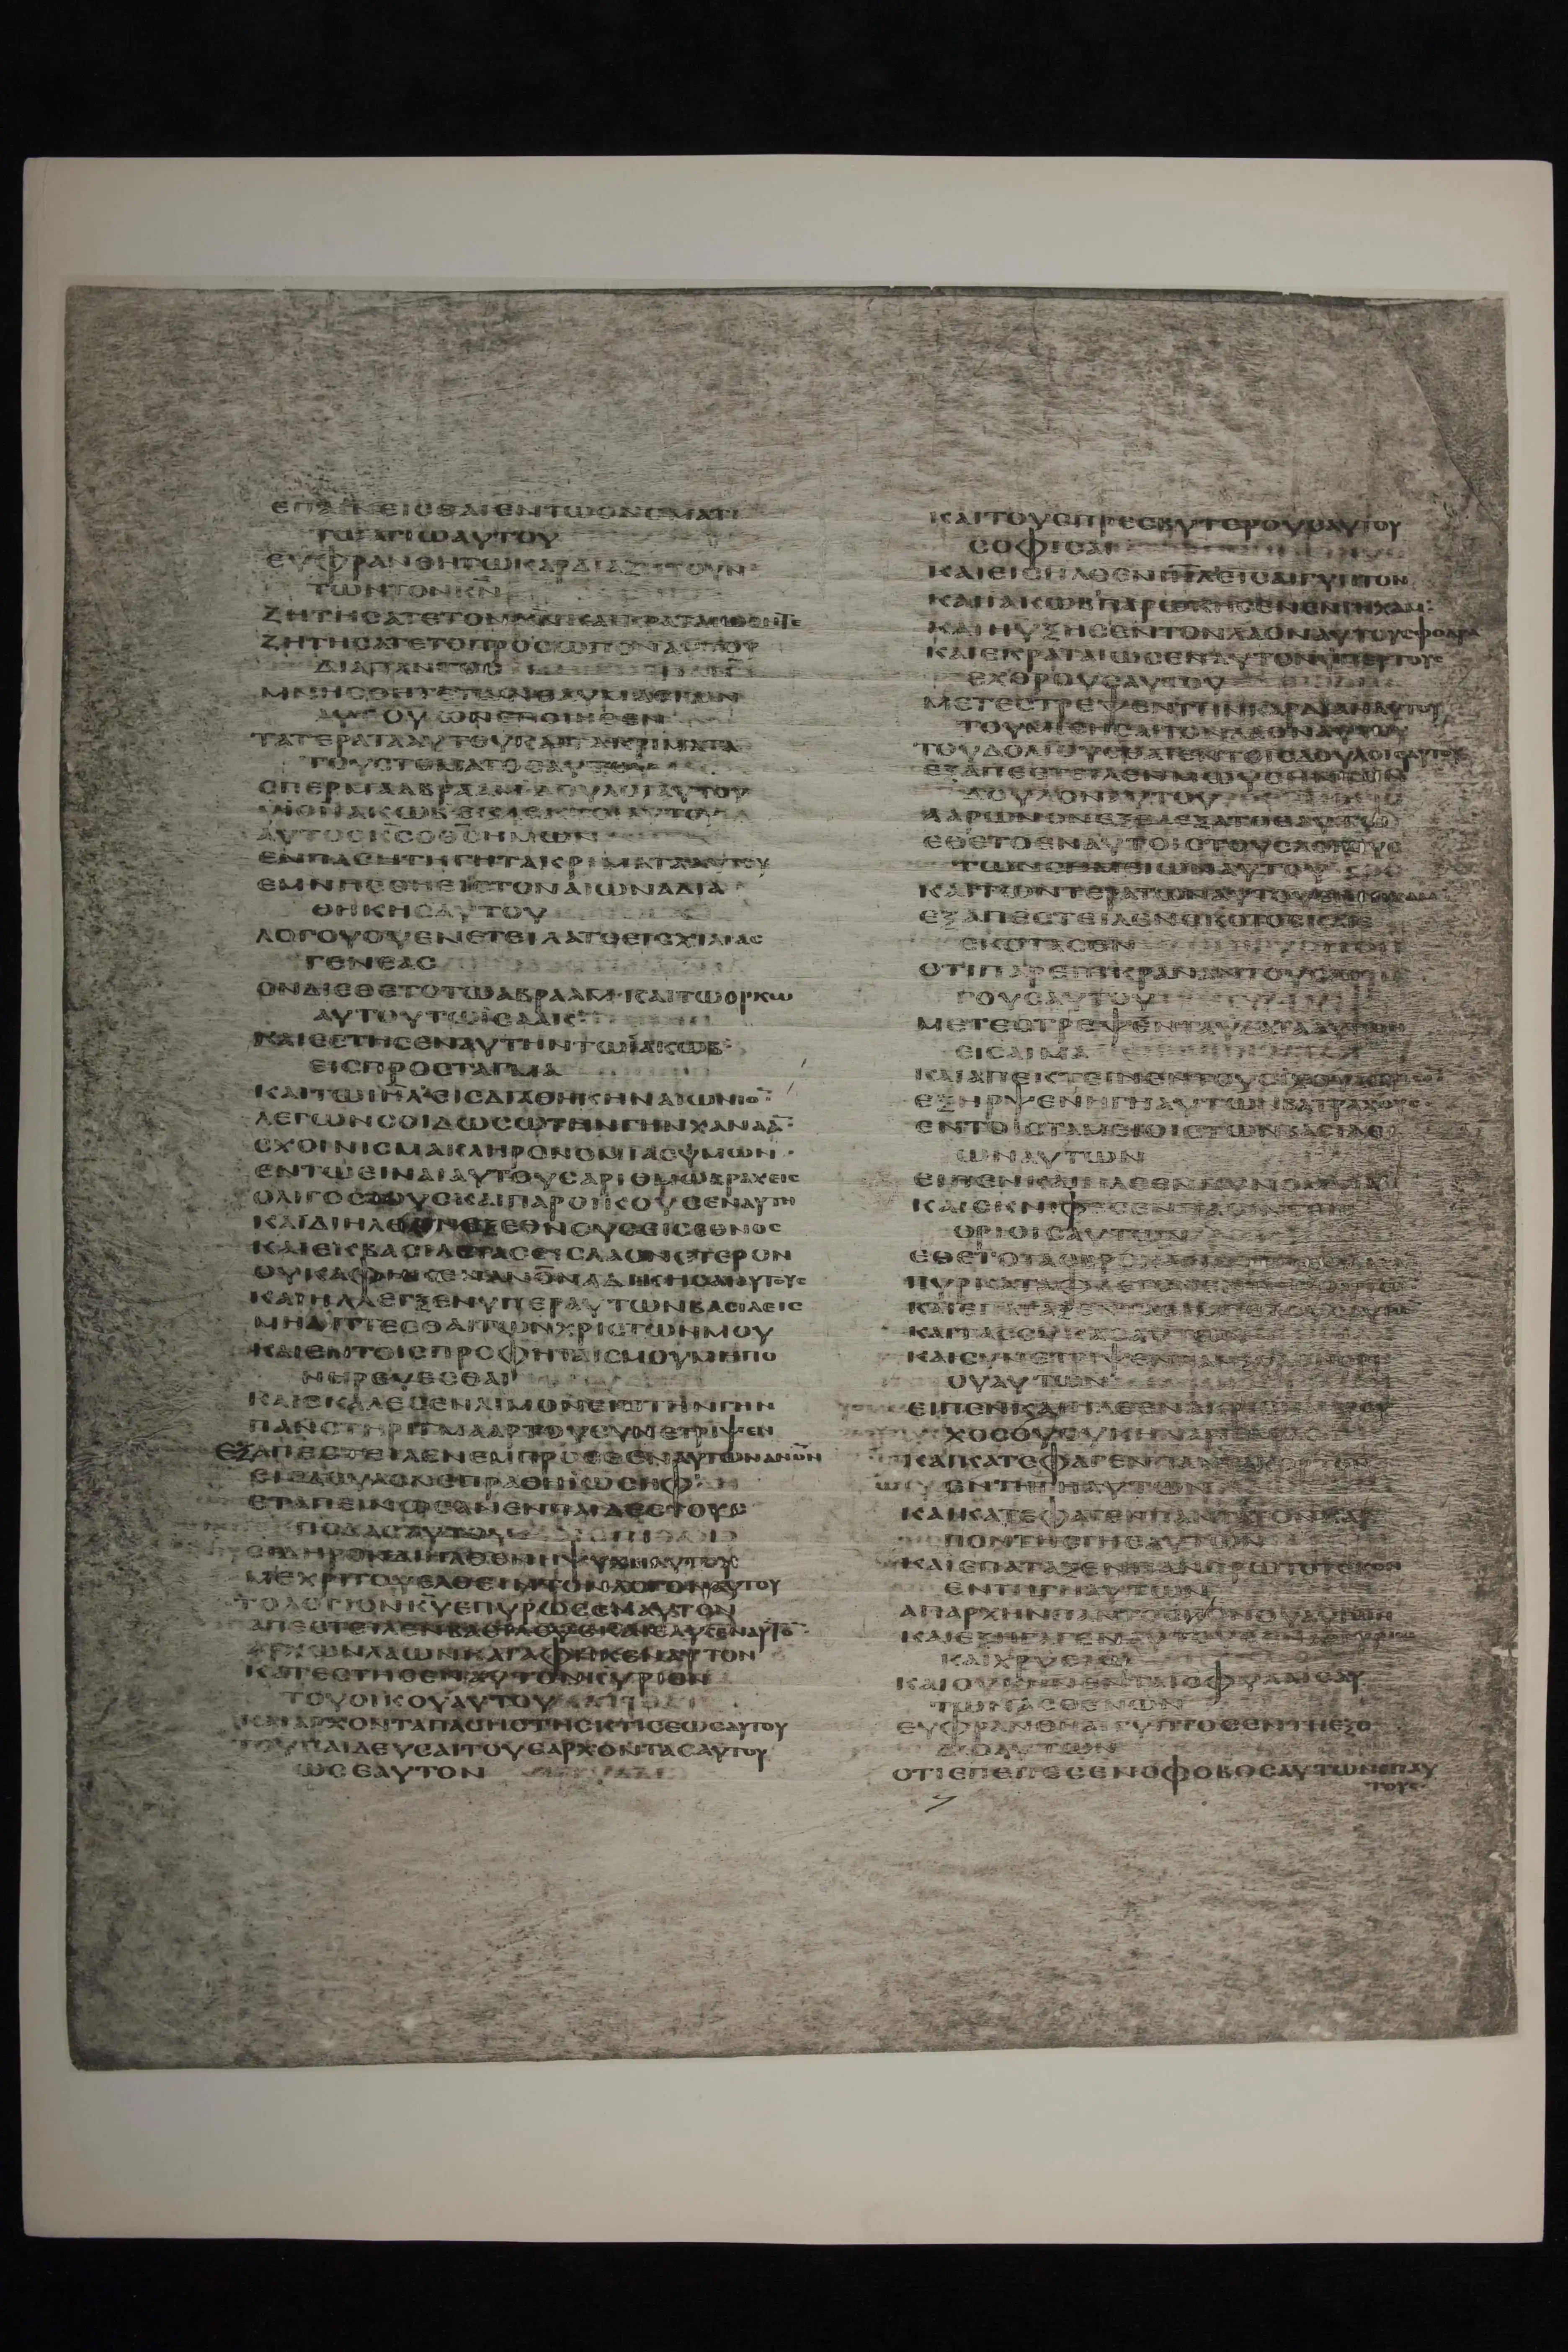 ΕΠΑΙΝΕΙΣΘΑΙΕΝΤΩΟΝΟΜΑΤΙ
ΤΩΑΓΙΩΑΥΤΟΥ
ΕΥΦΡΑΝΘΗΤΩΚΑΡΔΙΑΖΗΤΟΥΝ
ΤΩΝΤΟΝΚΝ
ΖΗΤΗΣΑΤΕΤΟΝΚΝΚΑΙΚΡΑΤΑΙΩΘΗΤΕ
ΖΗΤΗΣΑΤΕΤΟΠΡΟΣΩΠΟΝΑΥΤΟΥ
ΔΙΑΠΑΝΤΟΣ
ΜΝΗΣΘΗΤΕΤΩΝΘΑΥΜΑΣΙΩΝ
ΑΥΤΟΥΩΝΕΠΟΙΗΣΕΝ
ΤΑΤΕΡΑΤΑΑΥΤΟΥΚΑΙΤΑΚΡΙΜΑΤΑ
ΤΟΥΣΤΟΜΑΤΟΣΑΥΤΟΥ
ΣΠΕΡΜΑΑΒΡΑΑΜΔΟΥΛΟΙΑΥΤΟΥ
ΥΙΟΙΙΑΚΩΒΕΚΛΕΚΤΟΙΑΥΤΟΥ
ΑΥΤΟΣΚΣΟΘΣΗΜΩΝ
ΕΝΠΑΣΗΤΗΓΗΤΑΚΡΙΜΑΤΑΑΥΤΟΥ
ΕΜΝΗΣΘΗΕΙΣΤΟΝΑΙΩΝΑΔΙΑ
ΘΗΚΗΣΑΥΤΟΥ
ΛΟΓΟΥΟΥΕΝΕΤΕΙΛΑΤΟΕΙΣΧΙΛΙΑΣ
ΓΕΝΕΑΣ
ΟΝΔΙΕΘΕΤΟΤΩΑΒΡΑΑΜΚΑΙΤΩΟΡΚΩ
ΑΥΤΟΥΤΩΙΣΑΑΚ
ΚΑΙΕΣΤΗΣΕΝΑΥΤΗΝΤΩΙΑΚΩΒ
ΕΙΣΠΡΟΣΤΑΓΜΑ
ΚΑΙΤΩΙΗΛΕΙΣΔΙΑΘΗΚΗΝΑΙΩΝΙΟ
ΛΕΓΩΝΣΟΙΔΩΣΩΤΗΝΓΗΝΧΑΝΑΑ
ΣΧΟΙΝΙΣΜΑΚΛΗΡΟΝΟΜΙΑΣΥΜΩΝ
ΕΝΤΩΕΙΝΑΙΑΥΤΟΥΣΑΡΙΘΜΩΒΡΑΧΕΙΣ
ΟΛΙΓΟΣΤΟΥΣΚΑΙΠΑΡΟΙΚΟΥΣΕΝΑΥΤΗ
ΚΑΙΔΙΗΛΘΟΝΕΞΕΘΝΟΥΣΕΙΣΕΘΝΟΣ
ΚΑΙΕΚΒΑΣΙΛΕΙΑΣΕΙΣΛΑΟΝΕΤΕΡΟΝ
ΟΥΚΑΦΗΚΕΝΑΝΟΝΑΔΙΚΗΣΑΙΑΥΤΟΥΣ
ΚΑΙΗΛΛΕΓΞΕΝΥΠΕΡΑΥΤΩΝΒΑΣΙΛΕΙΣ
ΜΗΑΠΤΕΣΘΑΙΤΩΝΧΡΙΣΤΩΝΜΟΥ
ΚΑΙΕΝΤΟΙΣΠΡΟΦΗΤΑΙΣΜΟΥΜΗΠΟ
ΝΗΡΕΥΕΣΘΑΙ
ΚΑΙΕΚΑΛΕΣΕΝΛΙΜΟΝΕΠΙΤΗΝΓΗΝ
ΠΑΝΣΤΗΡΙΓΜΑΑΡΤΟΥΣΥΝΕΤΡΙΨΕΝ
ΕΞΑΠΕΣΤΕΙΛΕΝΕΜΠΡΟΣΘΕΝΑΥΤΩΝΑΝΟΝ
ΕΙΣΔΟΥΛΟΝΕΠΡΑΘΗΙΩΣΗΦ
ΕΤΑΠΕΙΝΩΣΑΝΕΝΠΑΙΔΕΣΤΟΥΣ
ΠΟΔΑΣΑΥΤΟΥ
ΣΙΔΗΡΟΝΔΙΗΛΘΕΝΗΨΥΧΗΑΥΤΟΥ
ΜΕΧΡΙΤΟΥΕΛΘΕΙΝΤΟΝΛΟΓΟΝΑΥΤΟΥ
ΤΟΛΟΓΙΟΝΚΥΕΠΥΡΩΣΕΝΑΥΤΟΝ
ΑΠΕΣΤΕΙΛΕΝΒΑΣΙΛΕΥΣΚΑΙΕΛΥΣΕΝΑΥΤΟ
ΑΡΧΩΝΛΑΩΝΚΑΙΑΦΗΚΕΝΑΥΤΟΝ
ΚΑΤΕΣΤΗΣΕΝΑΥΤΟΝΚΥΡΙΟΝ
ΤΟΥΟΙΚΟΥΑΥΤΟΥ
ΚΑΙΑΡΧΟΝΤΑΠΑΣΗΣΤΗΣΚΤΙΣΕΩΣΑΥΤΟΥ
ΤΟΥΠΑΙΔΕΥΣΑΙΤΟΥΣΑΡΧΟΝΤΑΣΑΥΤΟΥ
ΩΣΕΑΥΤΟΝ
ΚΑΙΤΟΥΣΠΡΕΣΒΥΤΕΡΟΥΣΑΥΤΟΥ
ΣΟΦΙΣΑΙ
ΚΑΙΕΙΣΗΛΘΕΝΙΗΛΕΙΣΑΙΓΥΠΤΟΝ
ΚΑΙΙΑΚΩΒΠΑΡΩΚΗΣΕΝΕΝΓΗΧΑΜ
ΚΑΙΗΥΞΗΣΕΝΤΟΝΛΑΟΝΑΥΤΟΥΣΦΟΔΡΑ
ΚΑΙΕΚΡΑΤΑΙΩΣΕΝΑΥΤΟΝΥΠΕΡΤΟΥΣ
ΕΧΘΡΟΥΣΑΥΤΟΥ
ΜΕΤΕΣΤΡΕΨΕΝΤΗΝΚΑΡΔΙΑΝΑΥΤΟΥ
ΤΟΥΜΙΣΗΣΑΙΤΟΝΛΑΟΝΑΥΤΟΥ
ΤΟΥΔΟΛΙΟΥΣΘΑΙΕΝΤΟΙΣΔΟΥΛΟΙΣΑΥΤΟΥ
ΕΞΑΠΕΣΤΕΙΛΕΝΜΩΥΣΗΝΤΟΝ
ΔΟΥΛΟΝΑΥΤΟΥ
ΑΑΡΩΝΟΝΕΞΕΛΕΞΑΤΟΕΑΥΤΩ
ΕΘΕΤΟΕΝΑΥΤΟΙΣΤΟΥΣΛΟΓΟΥΣ
ΤΩΝΣΗΜΕΙΩΝΑΥΤΟΥ
ΕΞΑΠΕΣΤΕΙΛΕΝΣΚΟΤΟΣΚΑΙΕ
ΣΚΟΤΑΣΕΝ
ΟΤΙΠΑΡΕΠΙΚΡΑΝΑΝΤΟΥΣΛΟ
ΓΟΥΣΑΥΤΟΥ
ΜΕΤΕΣΤΡΕΨΕΝΤΑΥΔΑΤΑΑΥΤΩΝ
ΕΙΣΑΙΜΑ
ΚΑΙΑΠΕΚΤΕΙΝΕΝΤΟΥΣΙΧΘΥΑΣ
ΕΞΗΡΨΕΝΗΓΗΑΥΤΩΝΒΑΤΡΑΧΟΥΣ
ΕΝΤΟΙΣΤΑΜΕΙΟΙΣΤΩΝΒΑΣΙΛΕ
ΩΝΑΥΤΩΝ
ΕΙΠΕΝΚΑΙΗΛΘΕΝΚΥΝΟΜΥΙΑ
ΚΑΙΣΚΝΙΦΕΣΕΝΠΑΣΙΝΤΟΙΣ
ΟΡΙΟΙΣΑΥΤΩΝ
ΚΑΙΣΥΝΕΤΡΙΨΕΝΠΑΝΞΥΛΟΝΟΡΙ
ΟΥΑΥΤΩΝ
ΕΙΠΕΝΚΑΙΗΛΘΕΝΑΚΡΙΣΚΑΙΒΡΟΥ
ΧΟΣΟΥΟΥΚΗΝΑΡΙΘΜΟΣ
ΚΑΙΚΑΤΕΦΑΓΕΝΠΑΝΤΑΧΟΡΤΟΝ
ΕΝΤΗΓΗΑΥΤΩΝ
ΚΑΙΚΑΤΕΦΑΓΕΝΠΑΝΤΑΤΟΝΚΑΡ
ΠΟΝΤΗΣΓΗΣΑΥΤΩΝ
ΚΑΙΕΠΑΤΑΞΕΝΠΑΝΠΡΩΤΟΤΟΚΟΝ
ΕΝΤΗΓΗΑΥΤΩΝ
ΑΠΑΡΧΗΝΠΑΝΤΟΣΠΟΝΟΥΑΥΤΩΝ
ΚΑΙΕΞΗΓΑΓΕΝΑΥΤΟΥΣΕΝΑΡΓΥΡΙΩ
ΚΑΙΧΡΥΣΙΩ
ΚΑΙΟΥΚΗΝΕΝΤΑΙΣΦΥΛΑΙΣΑΥ
ΤΩΝΑΣΘΕΝΩΝ
ΕΥΦΡΑΝΘΗΑΙΓΥΠΤΟΣΕΝΤΗΕΞΟ
ΔΩΑΥΤΩΝ
ΟΤΙΕΠΕΠΕΣΕΝΟΦΟΒΟΣΑΥΤΩΝΕΠΑΥ
ΤΟΥΣ